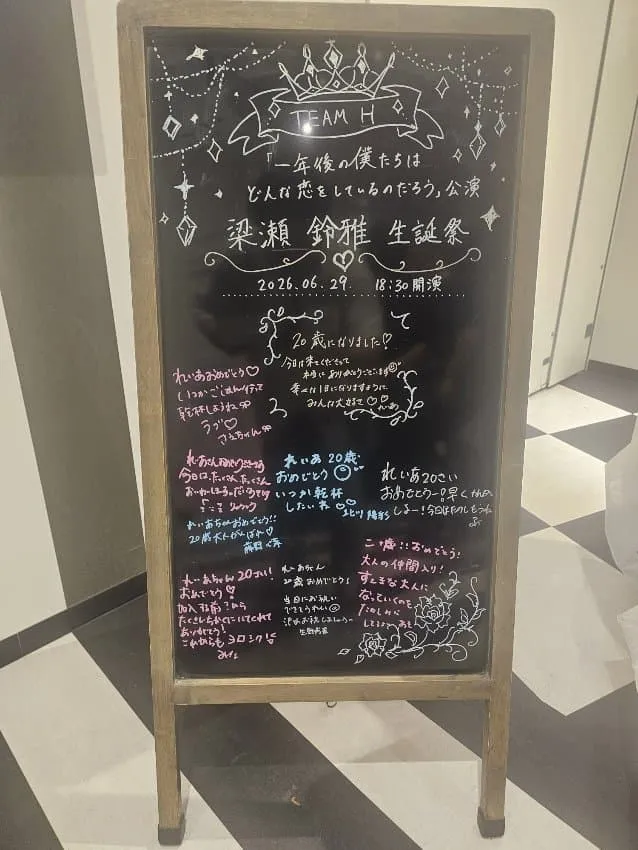 TEAM H
「一年後の僕たちは
どんな恋をしているのだろう」公演
梁瀬 鈴雅 生誕祭
2026.06.29. 18:30開演
20歳になりました♡
今日は来てくださって
本当にありがとうございます
幸せな1日になりますように
みんな大好き♡♡
れいあ
れいあおめでとう♡
いつかごはん行って
乾杯しようね
ラブ♡
さえちゃん
今日は、たくさん、たくさん
れいあちゃんおめでとう!!
20歳大人がんばれ♡
れいあ20歳
おめでとう
いつか乾杯
したいね♡♡
れいあ20さい
おめでとう
しよー!今日はたのしもうね
れいあちゃん20さい!
おめでとう!
ありがとう!
これからもヨロシク!
れいあちゃん
20歳おめでとう!
当日にお祝い
できてうれしい
二十歳!!おめでとう!
大人の仲間入り!
すてきな大人に
なっていくの
たのしみに
してるよ